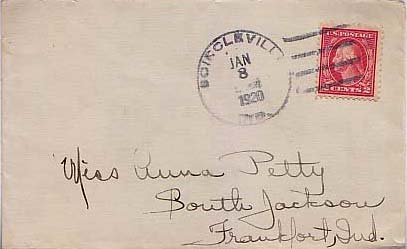 SCIRCLEVILL
JAN
8
1920
U.S. POSTAGE
2 CENTS 2
Miss Anna Petty
South Jackson
Frankfort, Ind.